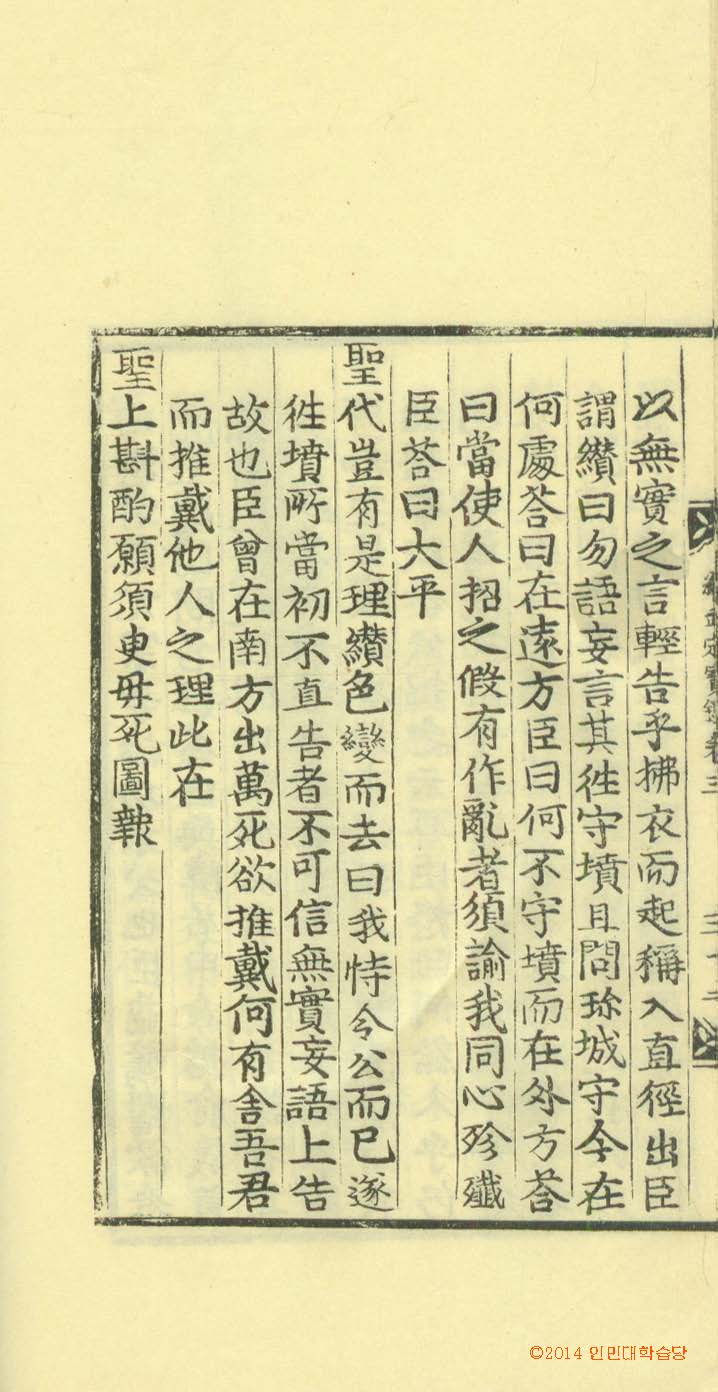 以無實之言輕告乎拂衣而起稱入直徑出臣
謂纘曰勿語妄言其徃守墳且問珎城守今在
何處荅曰在遠方臣曰何不守墳而在外方荅
曰當使人招之假有作亂者須諭我同心殄殲
臣荅曰大平
聖代豈有是理纘色變而去曰我恃令公而已遂
徃墳所當初不直告者不可信無實妄語上告
故也臣曾在南方出萬死欲推戴何有舍吾君
而推戴他人之理此在
聖上斟酌願須㬰毋死圖報
武定寶鑑卷三
©2014 인민대학습당